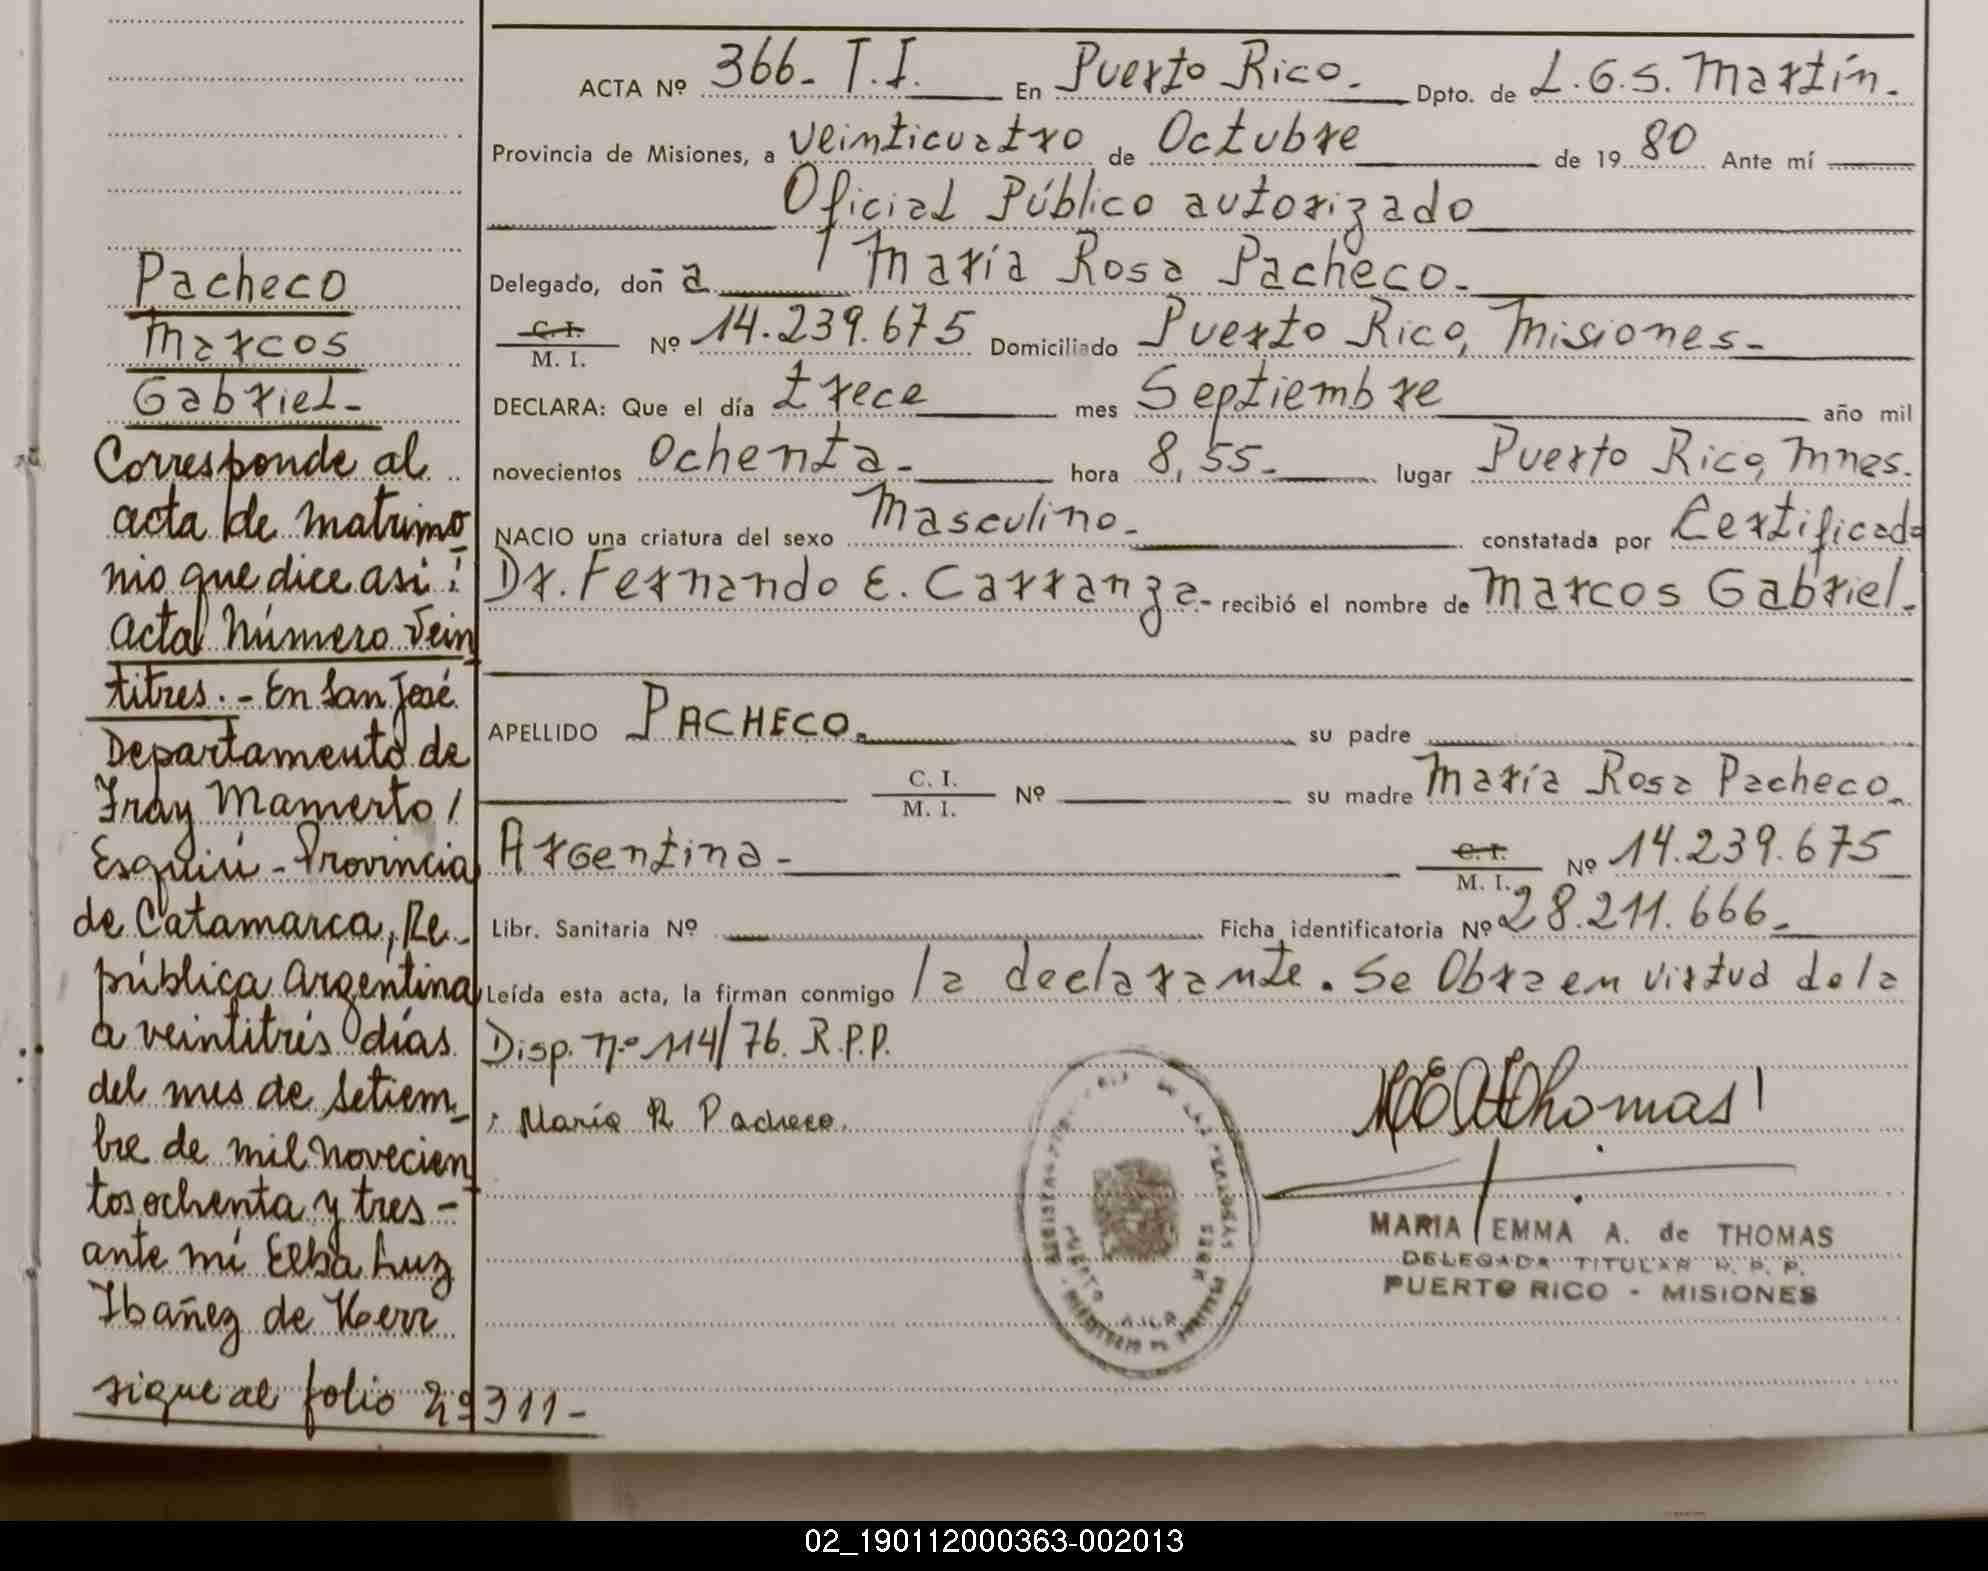 ACTA Nº 366- T.I. En Puerto Rico.- Dpto. de L.G.S. Martín.-
Provincia de Misiones, a veinticuatro de Octubre de 19 80 Ante mí
Oficial Público autorizado
Delegado, doñ a María Rosa Pacheco.-
C. I.
M. I. Nº 14.239.675 Domiciliado Puerto Rico, Misiones.-
DECLARA: Que el día trece mes Septiembre año mil
novecientos Ochenta.- hora 8,55.- lugar Puerto Rico, Mnes.
NACIO una criatura del sexo Masculino.- constatada por Certificado
Dr. Fernando E. Carranza.- recibió el nombre de Marcos Gabriel.-
APELLIDO PACHECO. su padre
C. I.
M. I. Nº su madre María Rosa Pacheco.
Argentina.-
C. I.
M. I. Nº 14.239.675
Libr. Sanitaria Nº Ficha identificatoria Nº 28.211.666.-
Leída esta acta, la firman conmigo la declarante. Se Obra en virtud de la
Disp. nº 114/76. R.P.P.
María R Pacheco.
MEAdeThomas
MARIA EMMA A. de THOMAS
DELEGADA TITULAR R. P. P.
PUERTO RICO - MISIONES
Pacheco
Marcos
Gabriel-
Corresponde al
acta de matrimo
nio que dice así:
Acta Número Vein
titres.- En San José
Departamento de
Fray Mamerto
Esquiú - Provincia
de Catamarca, Re-
pública Argentina
a veintitrés días
del mes de Setiem-
bre de mil novecien
tos ochenta y tres -
ante mí Elba Luz
Ibañez de Herr
sigue al folio 29311-
02_190112000363-002013